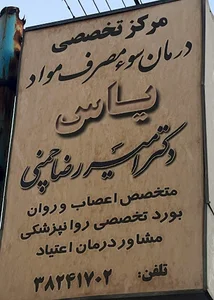 مرکز تخصصی
درمان سوء مصرف مواد
یاس
دکتر امیررضا چمنی
متخصص اعصاب و روان
بورد تخصصی روانپزشکی
مشاور درمان اعتیاد
تلفن: ۳۸۲۴۱۷۰۲